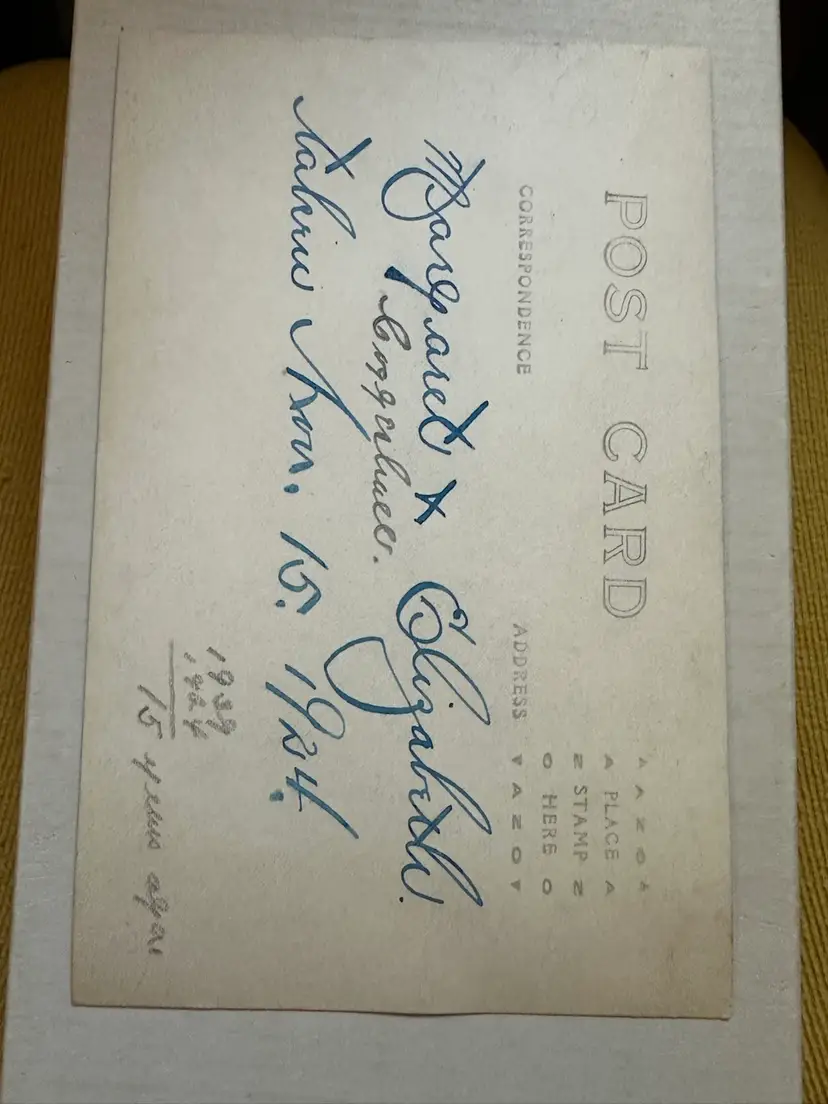 POST CARD
CORRESPONDENCE
ADDRESS
AZO
PLACE
STAMP
HERE
AZO
Margaret & Elizabeth.
taken Nov. 15. 1924.
1939
1924
15 years ago